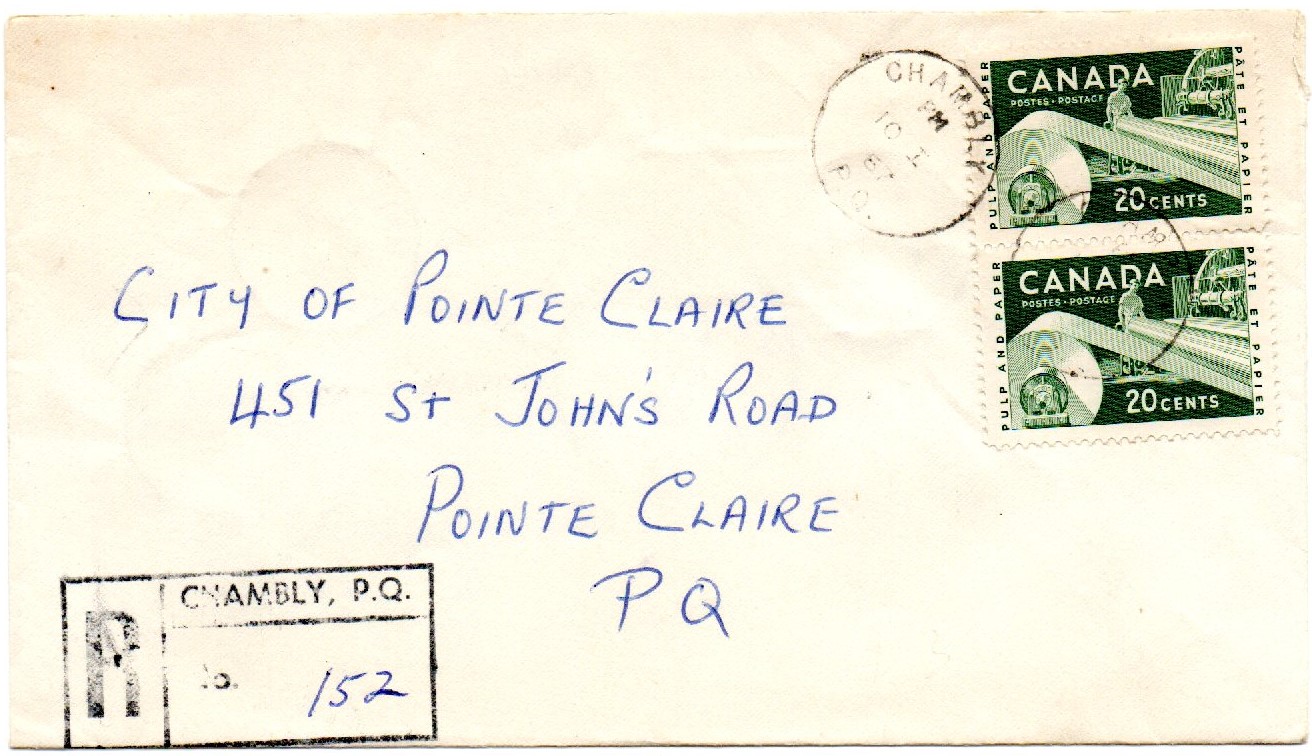 CHAMBLY
PM
10
P.Q.
CANADA
POSTES · POSTAGE
PULP AND PAPER
PÂTE ET PAPIER
20 CENTS
CANADA
POSTES · POSTAGE
PULP AND PAPER
PÂTE ET PAPIER
20 CENTS
CITY OF POINTE CLAIRE
451 St JOHN'S ROAD
POINTE CLAIRE
PQ
R
CHAMBLY, P.Q.
No. 152